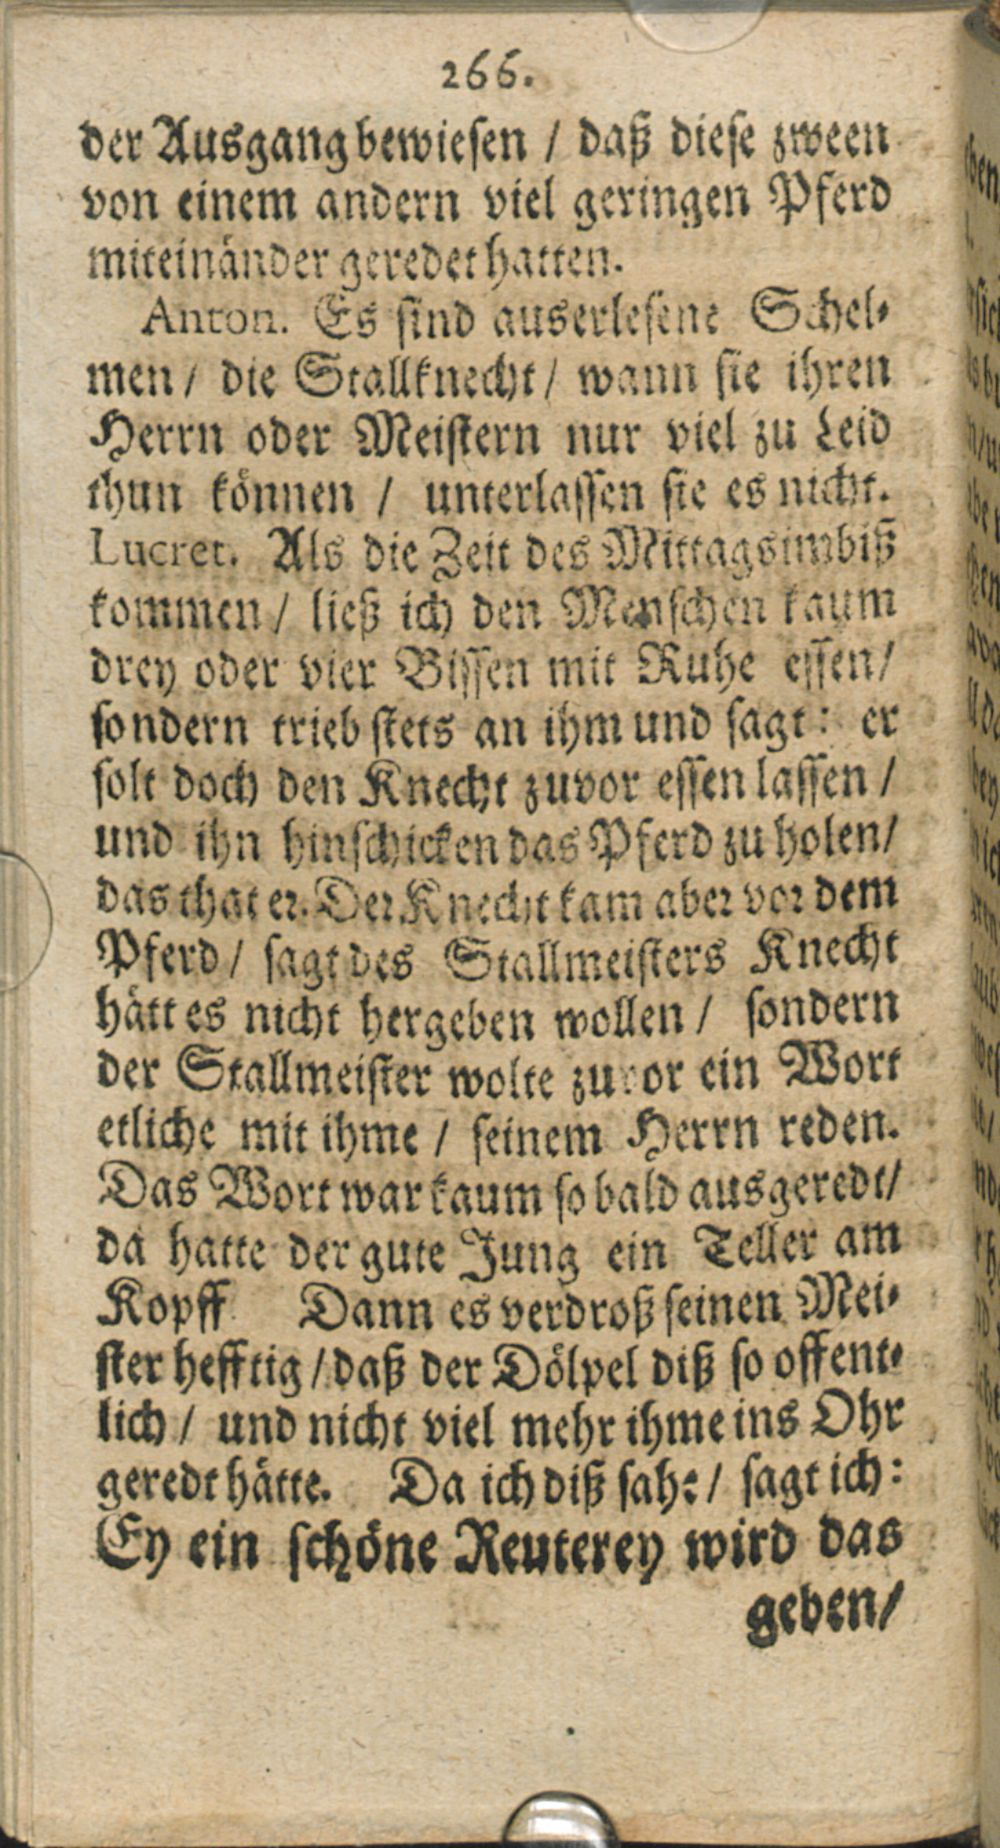 266.
der Ausgang bewiesen / daß diese zween
von einem andern viel geringen Pferd
miteinänder geredet hatten.
Anton. Es sind auserlesene Schel-
men / die Stallknecht / wann sie ihren
Herrn oder Meistern nur viel zu Leid
thun können / unterlassen sie es nicht.
Lucret. Als die Zeit des Mittagsimbiß
kommen / ließ ich den Menschen kaum
drey oder vier Bissen mit Ruhe essen /
sondern trieb stets an ihm und sagt: er
solt doch den Knecht zuvor essen lassen /
und ihn hinschicken das Pferd zu holen /
das that er. Der Knecht kam aber vor dem
Pferd / sagt des Stallmeisters Knecht
hätt es nicht hergeben wollen / sondern
der Stallmeister wolte zuvor ein Wort
etliche mit ihme / seinem Herrn reden.
Das Wort war kaum so bald ausgeredt /
da hatte der gute Jung ein Teller am
Kopff Dann es verdroß seinen Mei-
ster hefftig / daß der Dölpel diß so offent-
lich / und nicht viel mehr ihme ins Ohr
geredt hätte. Da ich diß sahe / sagt ich:
Ey ein schöne Reuterey wird das
geben /